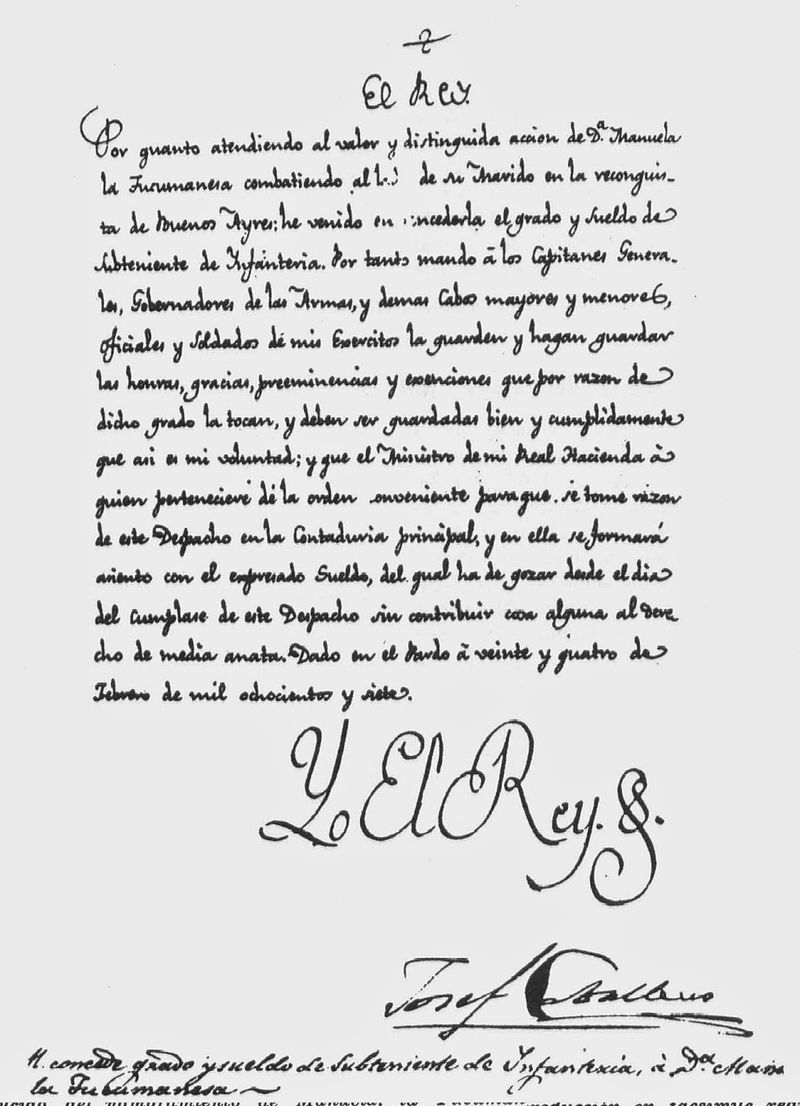 El Rey.
Por quanto atendiendo al valor y distinguida accion de D.ª Manuela
la Tucumanesa combatiendo al de su Marido en la reconquis-
ta de Buenos Ayres; he venido en concederla el grado y sueldo de
Subteniente de Infanteria. Por tanto mando â los Capitanes Genera-
les, Gobernadores de las Armas, y demas Cabos mayores y menores,
Oficiales y Soldados de mis Exercitos la guarden y hagan guardar
las honras, gracias, preeminencias y exenciones que por razon de
dicho grado la tocan, y deben ser guardadas bien y cumplidamente
que asi es mi voluntad; y que el Ministro de mi Real Hacienda â
quien perteneciere dé la orden conveniente para que se tome razon
de este Despacho en la Contaduria principal, y en ella se formará
asiento con el expresado Sueldo, del qual ha de gozar desde el dia
del Cumplase de este Despacho sin contribuir cosa alguna al dere
cho de media anata. Dado en el Pardo â veinte y quatro de
Febrero de mil ochocientos y siete.
Yo El Rey.
Josef Caballero
V. concede grado y sueldo de Subteniente de Infanteria, â D.ª Manu
la Tucumanesa